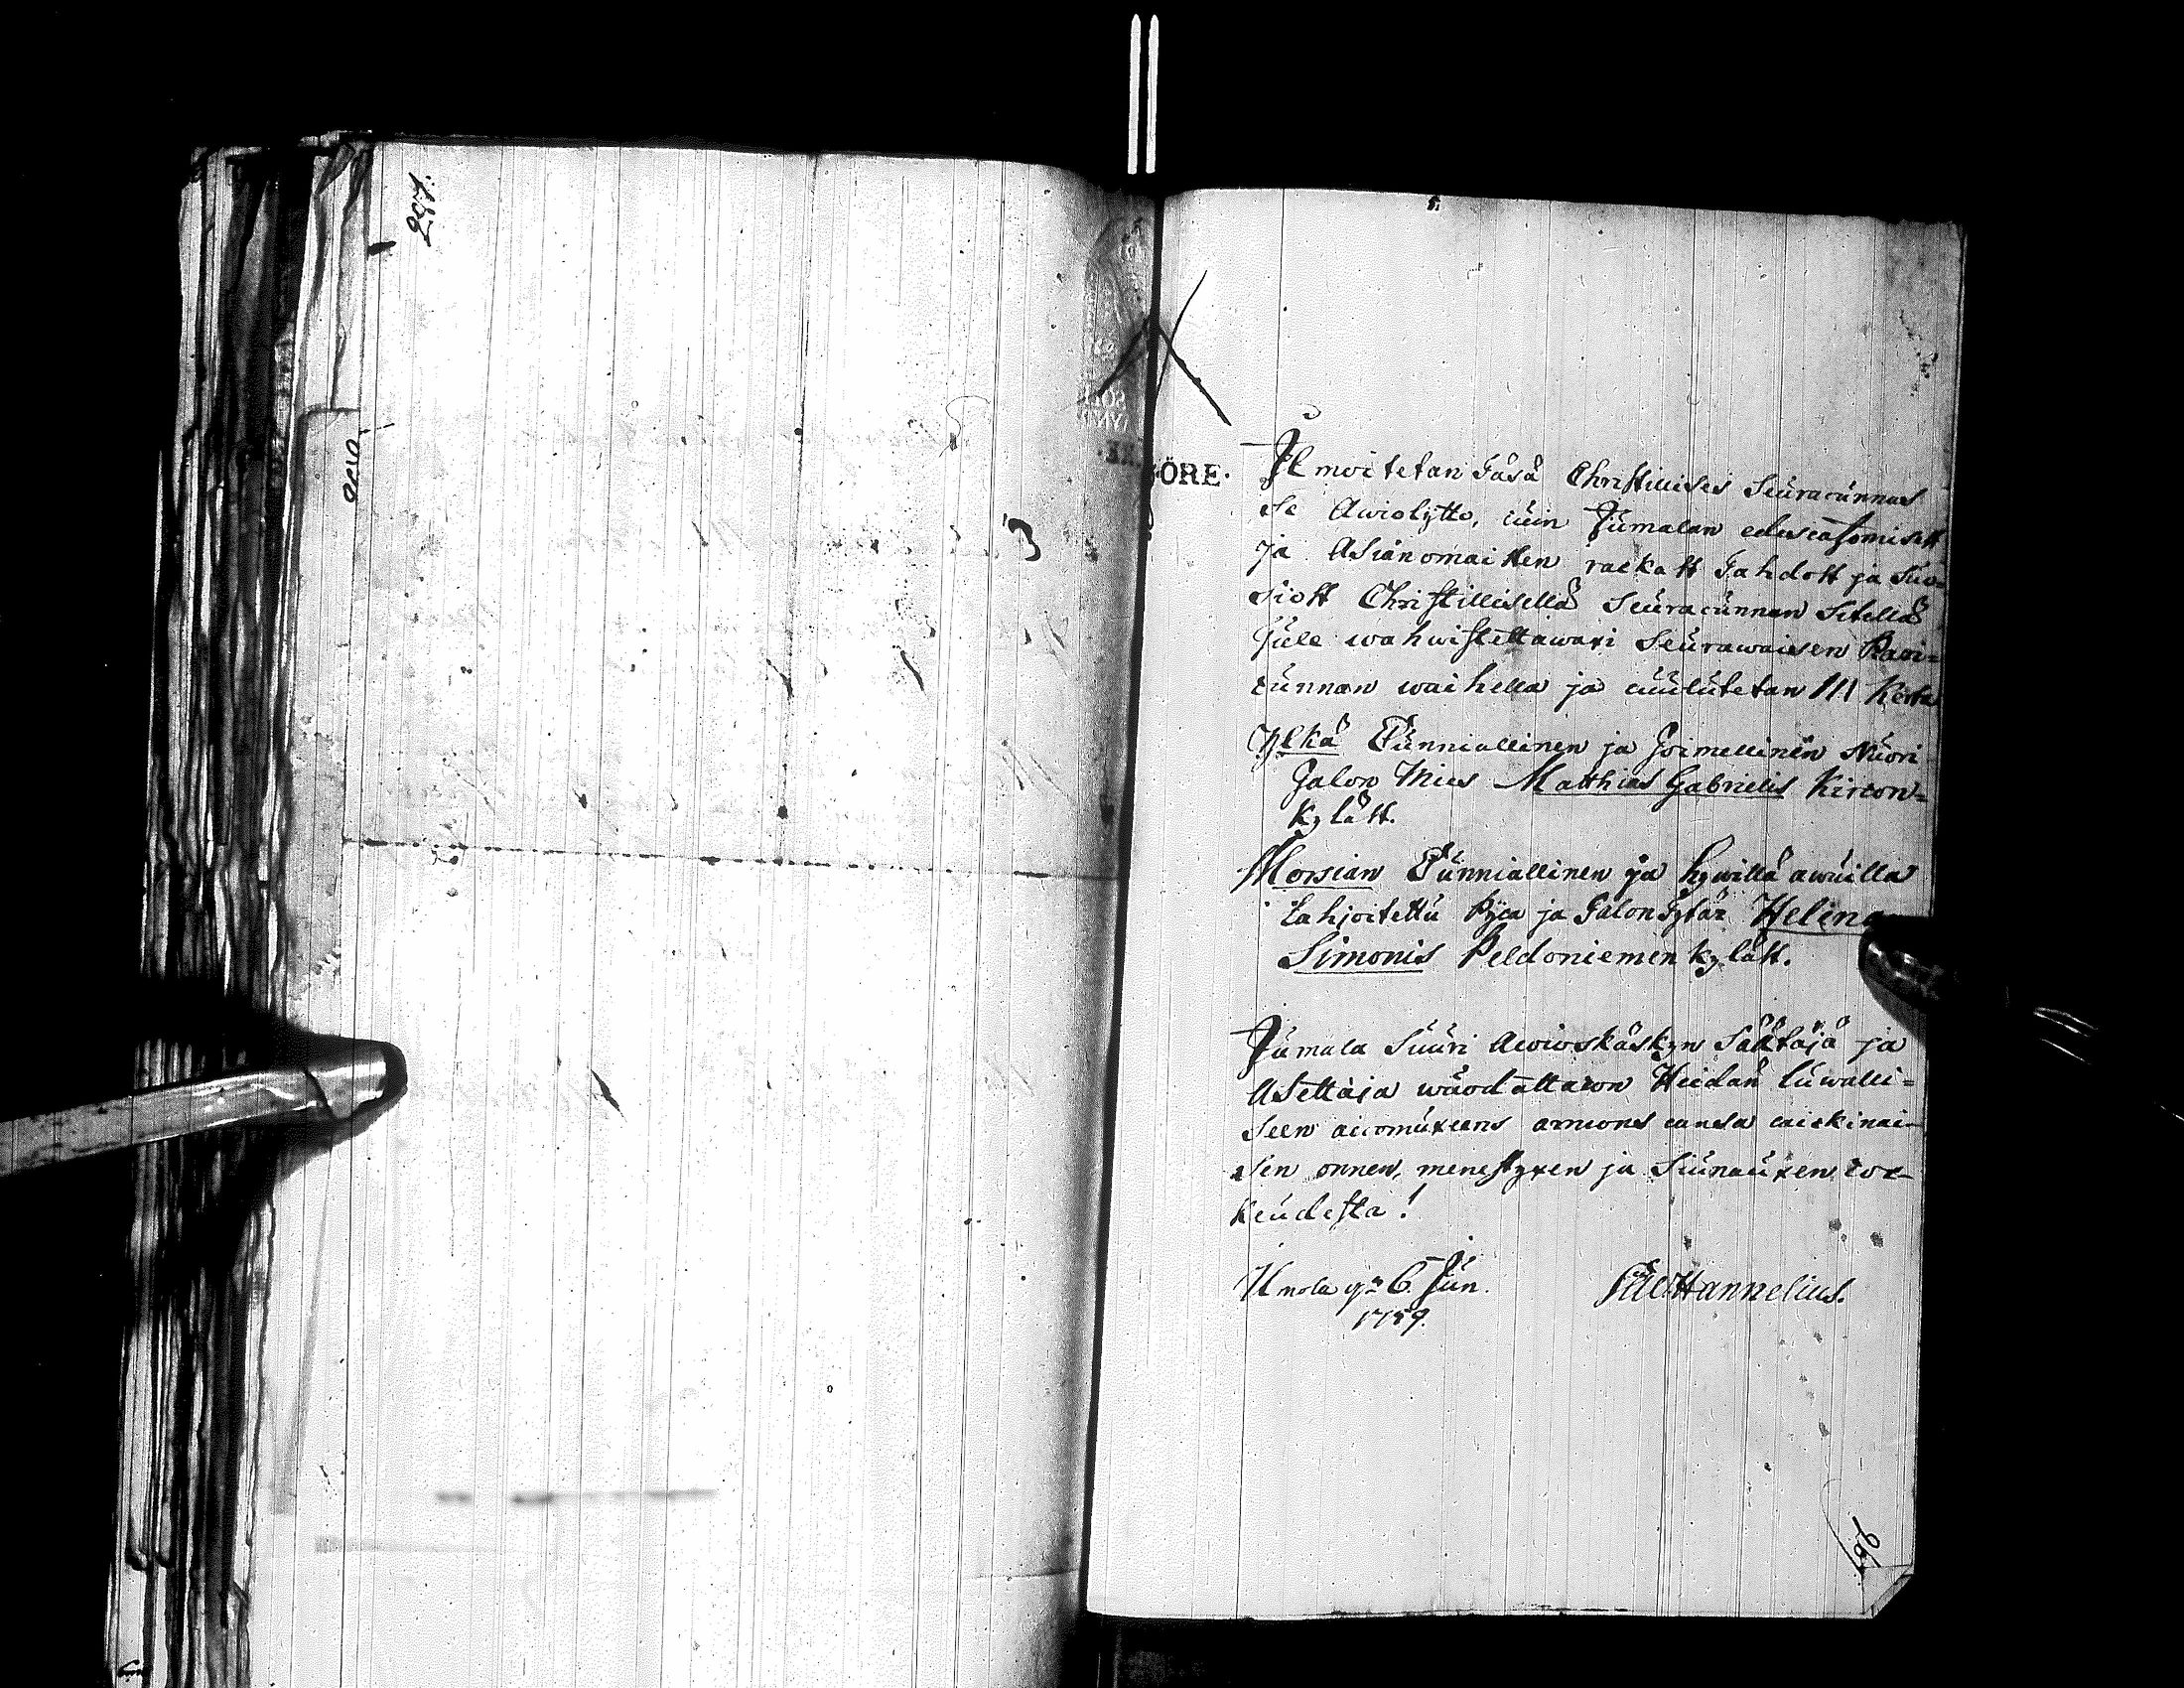 297.
3
ÖRE.
Ilmoitetan Täsä Christillises Seuracunnas
se Awiolytto, cuin Jumalan edescatsomisest
ja Asianomaitten raekast Tahdost ja Suo-
siost Christillisellä Seuracunnan Sitellä
Tule wahwistettawaxi Seurawaisen Pari-
cunnan waihella ja cuulutetan III Kerta
Ylkä Cunniallinen ja Toimellinen Nuori
Talon Mies Matthias Gabrielis Kircon-
kyläst.
Morsian Cunniallinen ja hywillä awuilla
Lahjoitettu Pijca ja Talon Tytär Helena
Simonis Peldoniemen kyläst.
Jumala Suuri Awioskäskyn Säätäjä ja
Asettaja wuodattacon Heidän luwalli-
seen aicomuxeens armons cansa caickinai-
sen onnen, menestyxen ja Siunauxen coc-
keudesta!
Umola ij 6. Jun.
1759.
Hannelius.
296